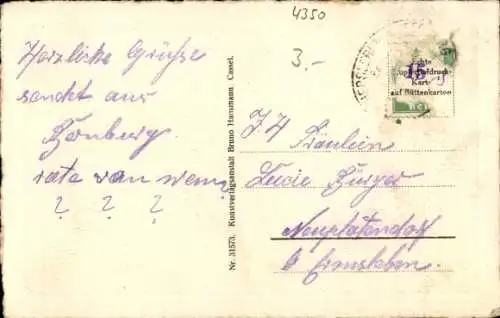 4350
3.-
Herzliche Grüße
sendet aus
Homburg
rate von wem
? ? ?
Nr. 31573. Kunstverlagsanstalt Bruno Hansmann Cassel.
Echte
Kupfertiefdruck-
Karte
auf Büttenkarton
15
Fräulein
Lucie Bürger
Neuplatendorf
b Ermsleben.